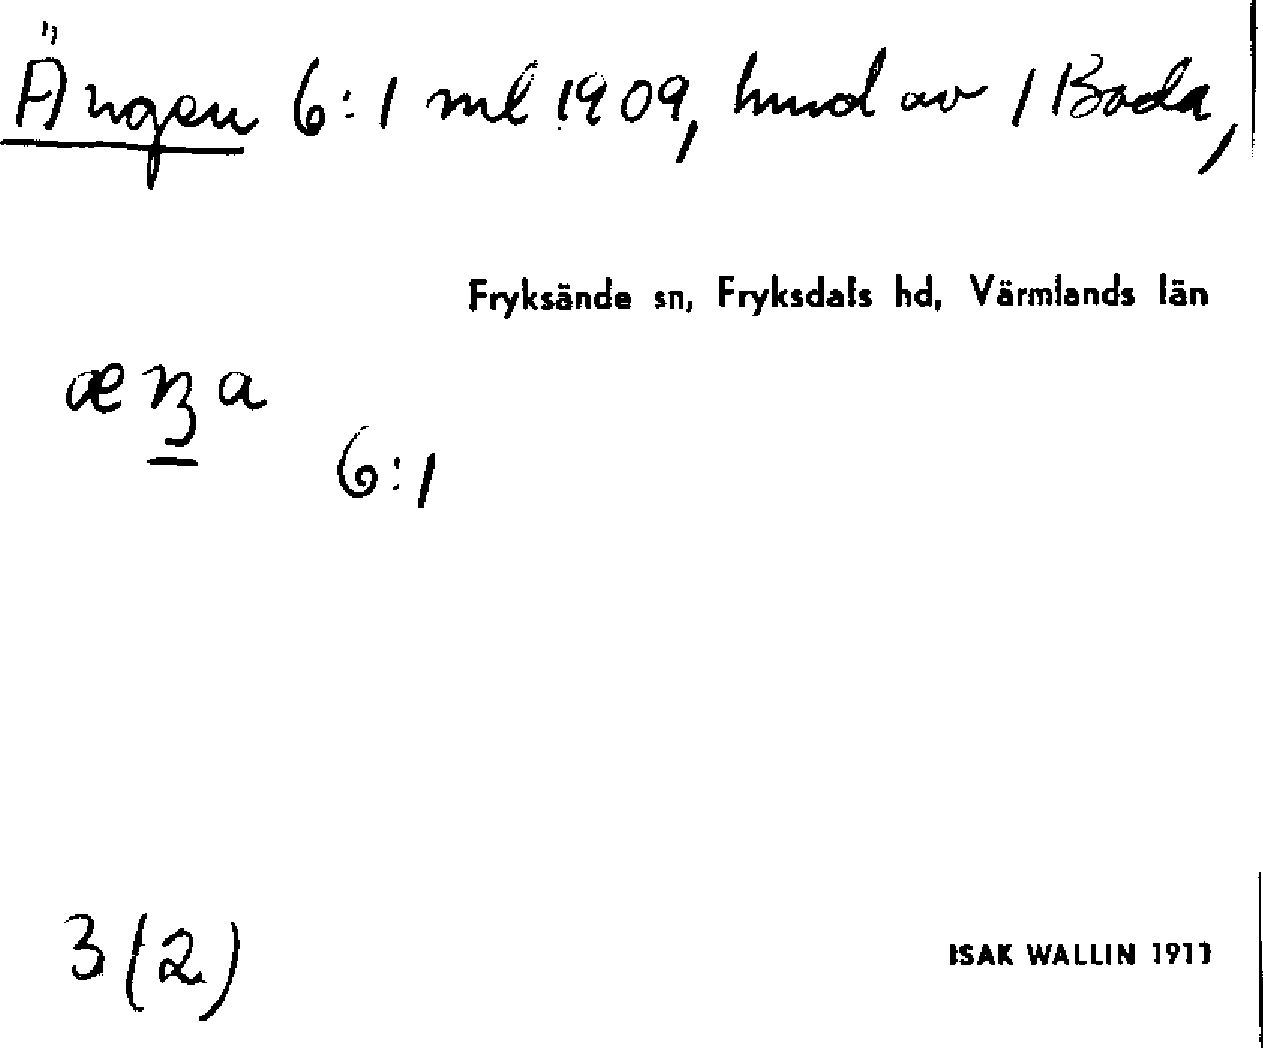 Ängen 6:1 ml 1909, hmd av 1 Bada,
Fryksände sn, Fryksdals hd, Värmlands län
6:1
3 (2)
ISAK WALLIN 1911